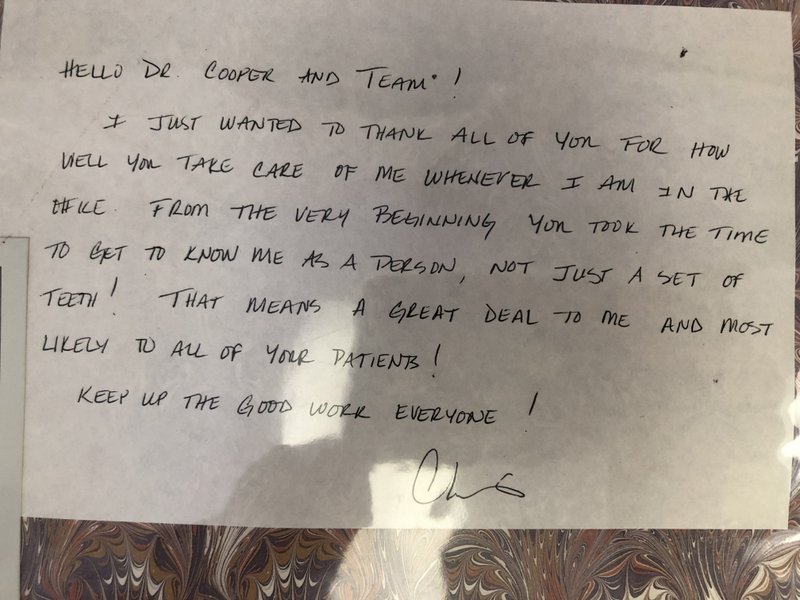 HELLO DR. COOPER AND TEAM!
I JUST WANTED TO THANK ALL OF YOU FOR HOW
WELL YOU TAKE CARE OF ME WHENEVER I AM IN THE
OFFICE. FROM THE VERY BEGINNING YOU TOOK THE TIME
TO GET TO KNOW ME AS A PERSON, NOT JUST A SET OF
TEETH! THAT MEANS A GREAT DEAL TO ME AND MOST
LIKELY TO ALL OF YOUR PATIENTS!
KEEP UP THE GOOD WORK EVERYONE!